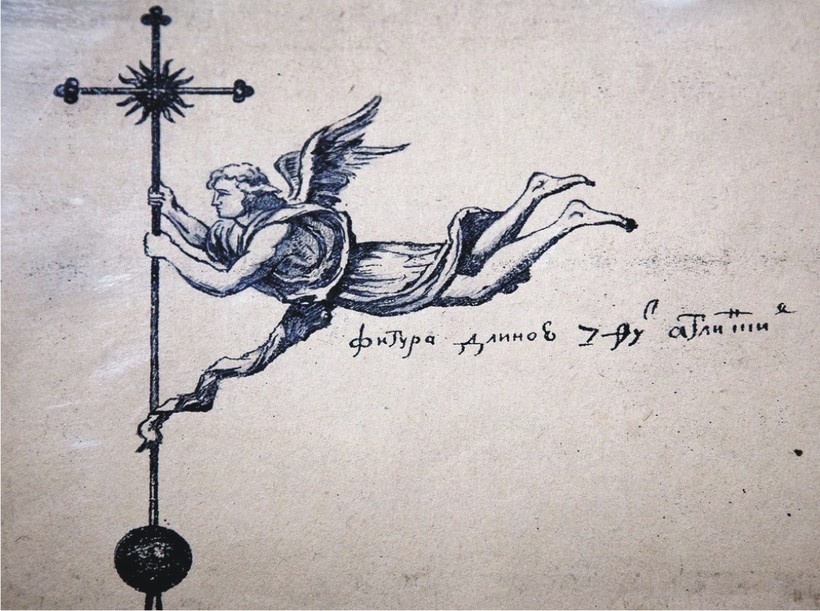 фигура длиною 7 фуⷮ аглиⷩскиⷯ